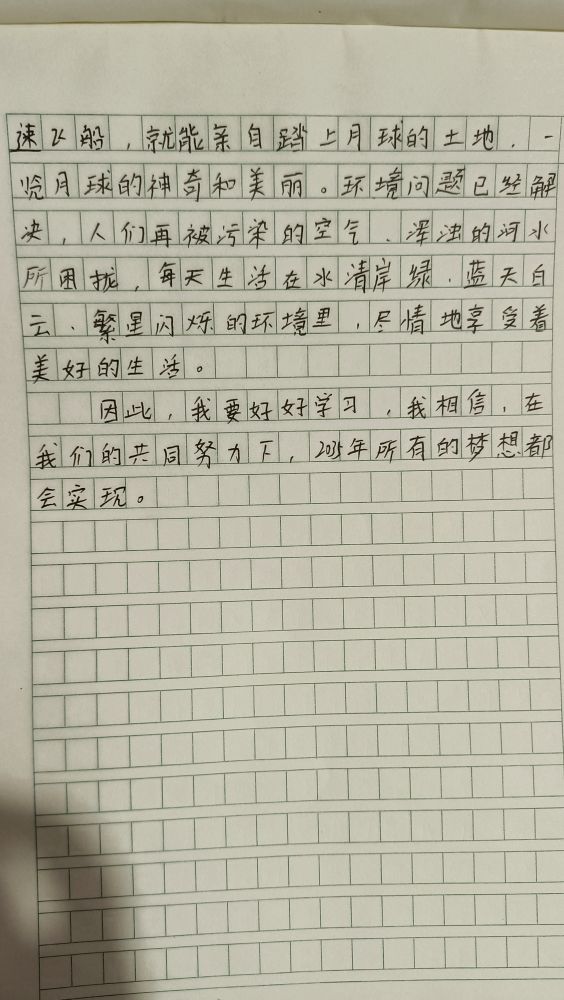 速飞船，就能亲自踏上月球的土地，一
览月球的神奇和美丽。环境问题已经解
决，人们再被污染的空气、浑浊的河水
所困扰，每天生活在水清岸绿、蓝天白
云、繁星闪烁的环境里，尽情地享受着
美好的生活。
因此，我要好好学习，我相信，在
我们的共同努力下，2035年所有的梦想都
会实现。